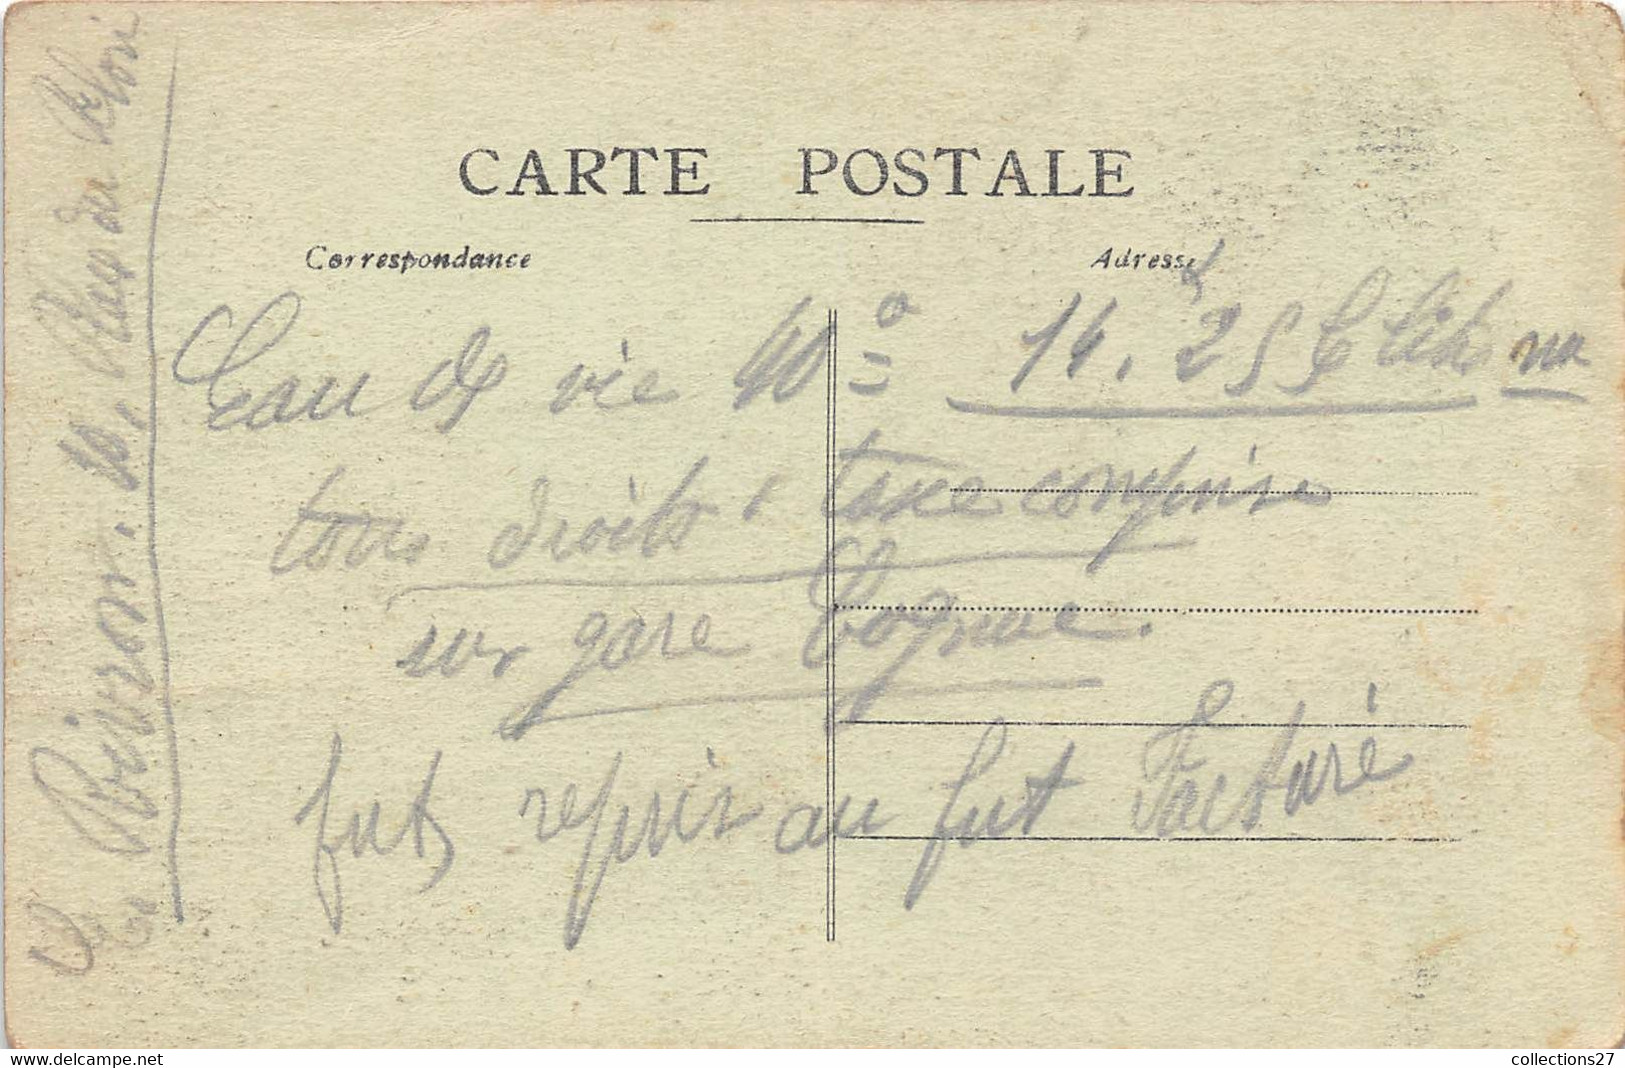 CARTE POSTALE
Correspondance
Adresse
Eau de vie 40° 14,25
tous droits & taxe comprise
sur gare Cognac.
fut repris au fut Facturé
Rivron. 10, Rue du
collections27